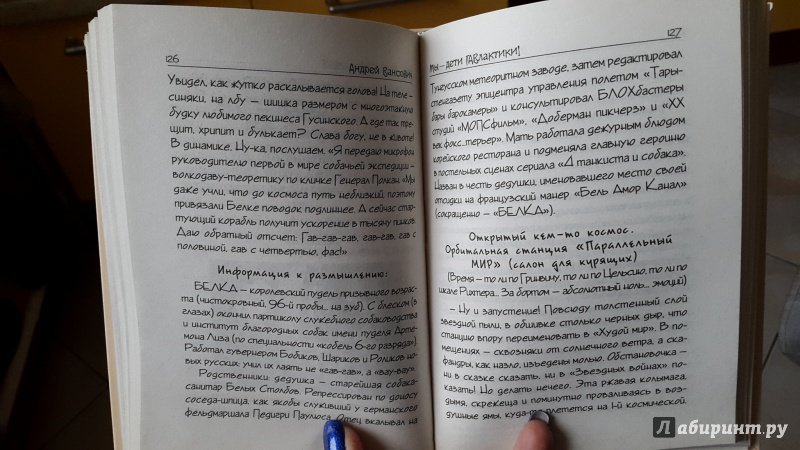 126
Андрей Вансович
Увидел, как жутко раскалывается голова! На теле —
синяки, на лбу — шишка размером с многоэтажную
будку любимого пекинеса Гусинского. А где так тре-
щит, хрипит и булькает? Слава богу, не в животе!
В динамике. Ну-ка, послушаем. «Я передаю микрофон
руководителю первой в мире собачьей экспедиции —
волкодаву-теоретику по кличке Генерал Полкан. «Мы
даже учли, что до космоса путь неблизкий, поэтому
привязали Белке поводок подлиннее. А сейчас стар-
тующий корабль получит ускорение в тысячу пинков.
Даю обратный отсчет: Гав-гав-гав, гав-гав, гав с
половиной, гав с четвертью, фас!»
Информация к размышлению:
БЕЛКА — королевский пудель призывного возрас-
та (чистокровный, 96-й пробы... на зуб). С блеском (в
глазах) окончил партшколу служебного собаководства
и институт благородных собак имени пуделя Арте-
мона Лиза (по специальности «кобель 6-го разряда»).
Работал гувернером Бобиков, Шариков и Роликов но-
вых русских: учил их лаять не «гав-гав», а «вау-вау».
Родственники: дедушка — старейшая собака-
санитар Белых Столбов. Репрессирован по доносу
соседа-шпица, как якобы служивший у германского
фельдмаршала Педигри Паулюса. Отец вкалывал на
127
Мы — дети ГАВлактики
Тунгусском метеоритном заводе, затем редактировал
стенгазету эпицентра управления полетом «Тары-
бары барокамеры» и консультировал БЛОХбастеры
студий «МОПСфильм», «Доберман пикчерз» и «XX
век фокс..терьер». Мать работала дежурным блюдом
корейского ресторана и подменяла главную героиню
в постельных сценах сериала «4 танкиста и собака».
Назван в честь дедушки, именовавшего место своей
отсидки на французский манер «Бель Амор Канал»
(сокращенно — «БЕЛКА»).
Открытый кем-то космос.
Орбитальная станция «Параллельный
МИР» (салон для курящих)
(Время — то ли по Гринвичу, то ли по Цельсию, то ли по
шкале Рихтера... За бортом — абсолютный ноль... эмоций)
– Ну и запустение! Повсюду толстенный слой
звездной пыли, в обшивке столько черных дыр, что
станцию впору переименовать в «Худой мир». В по-
мещениях — сквозняки от солнечного ветра, а ска-
фандры, как назло, изъедены молью. Обстановочка —
ни в сказке сказать, ни в «Звездных войнах» по-
казать! Но делать нечего. Эта ржавая колымага,
дымя, скрежеща и поминутно проваливаясь в воз-
душные ямы, плетется на 1-й космической.
Лабиринт.ру